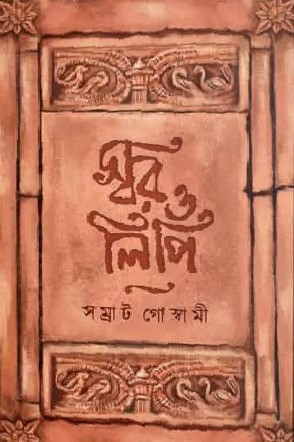 স্বর ও
লিপি
সম্রাট গোস্বামী